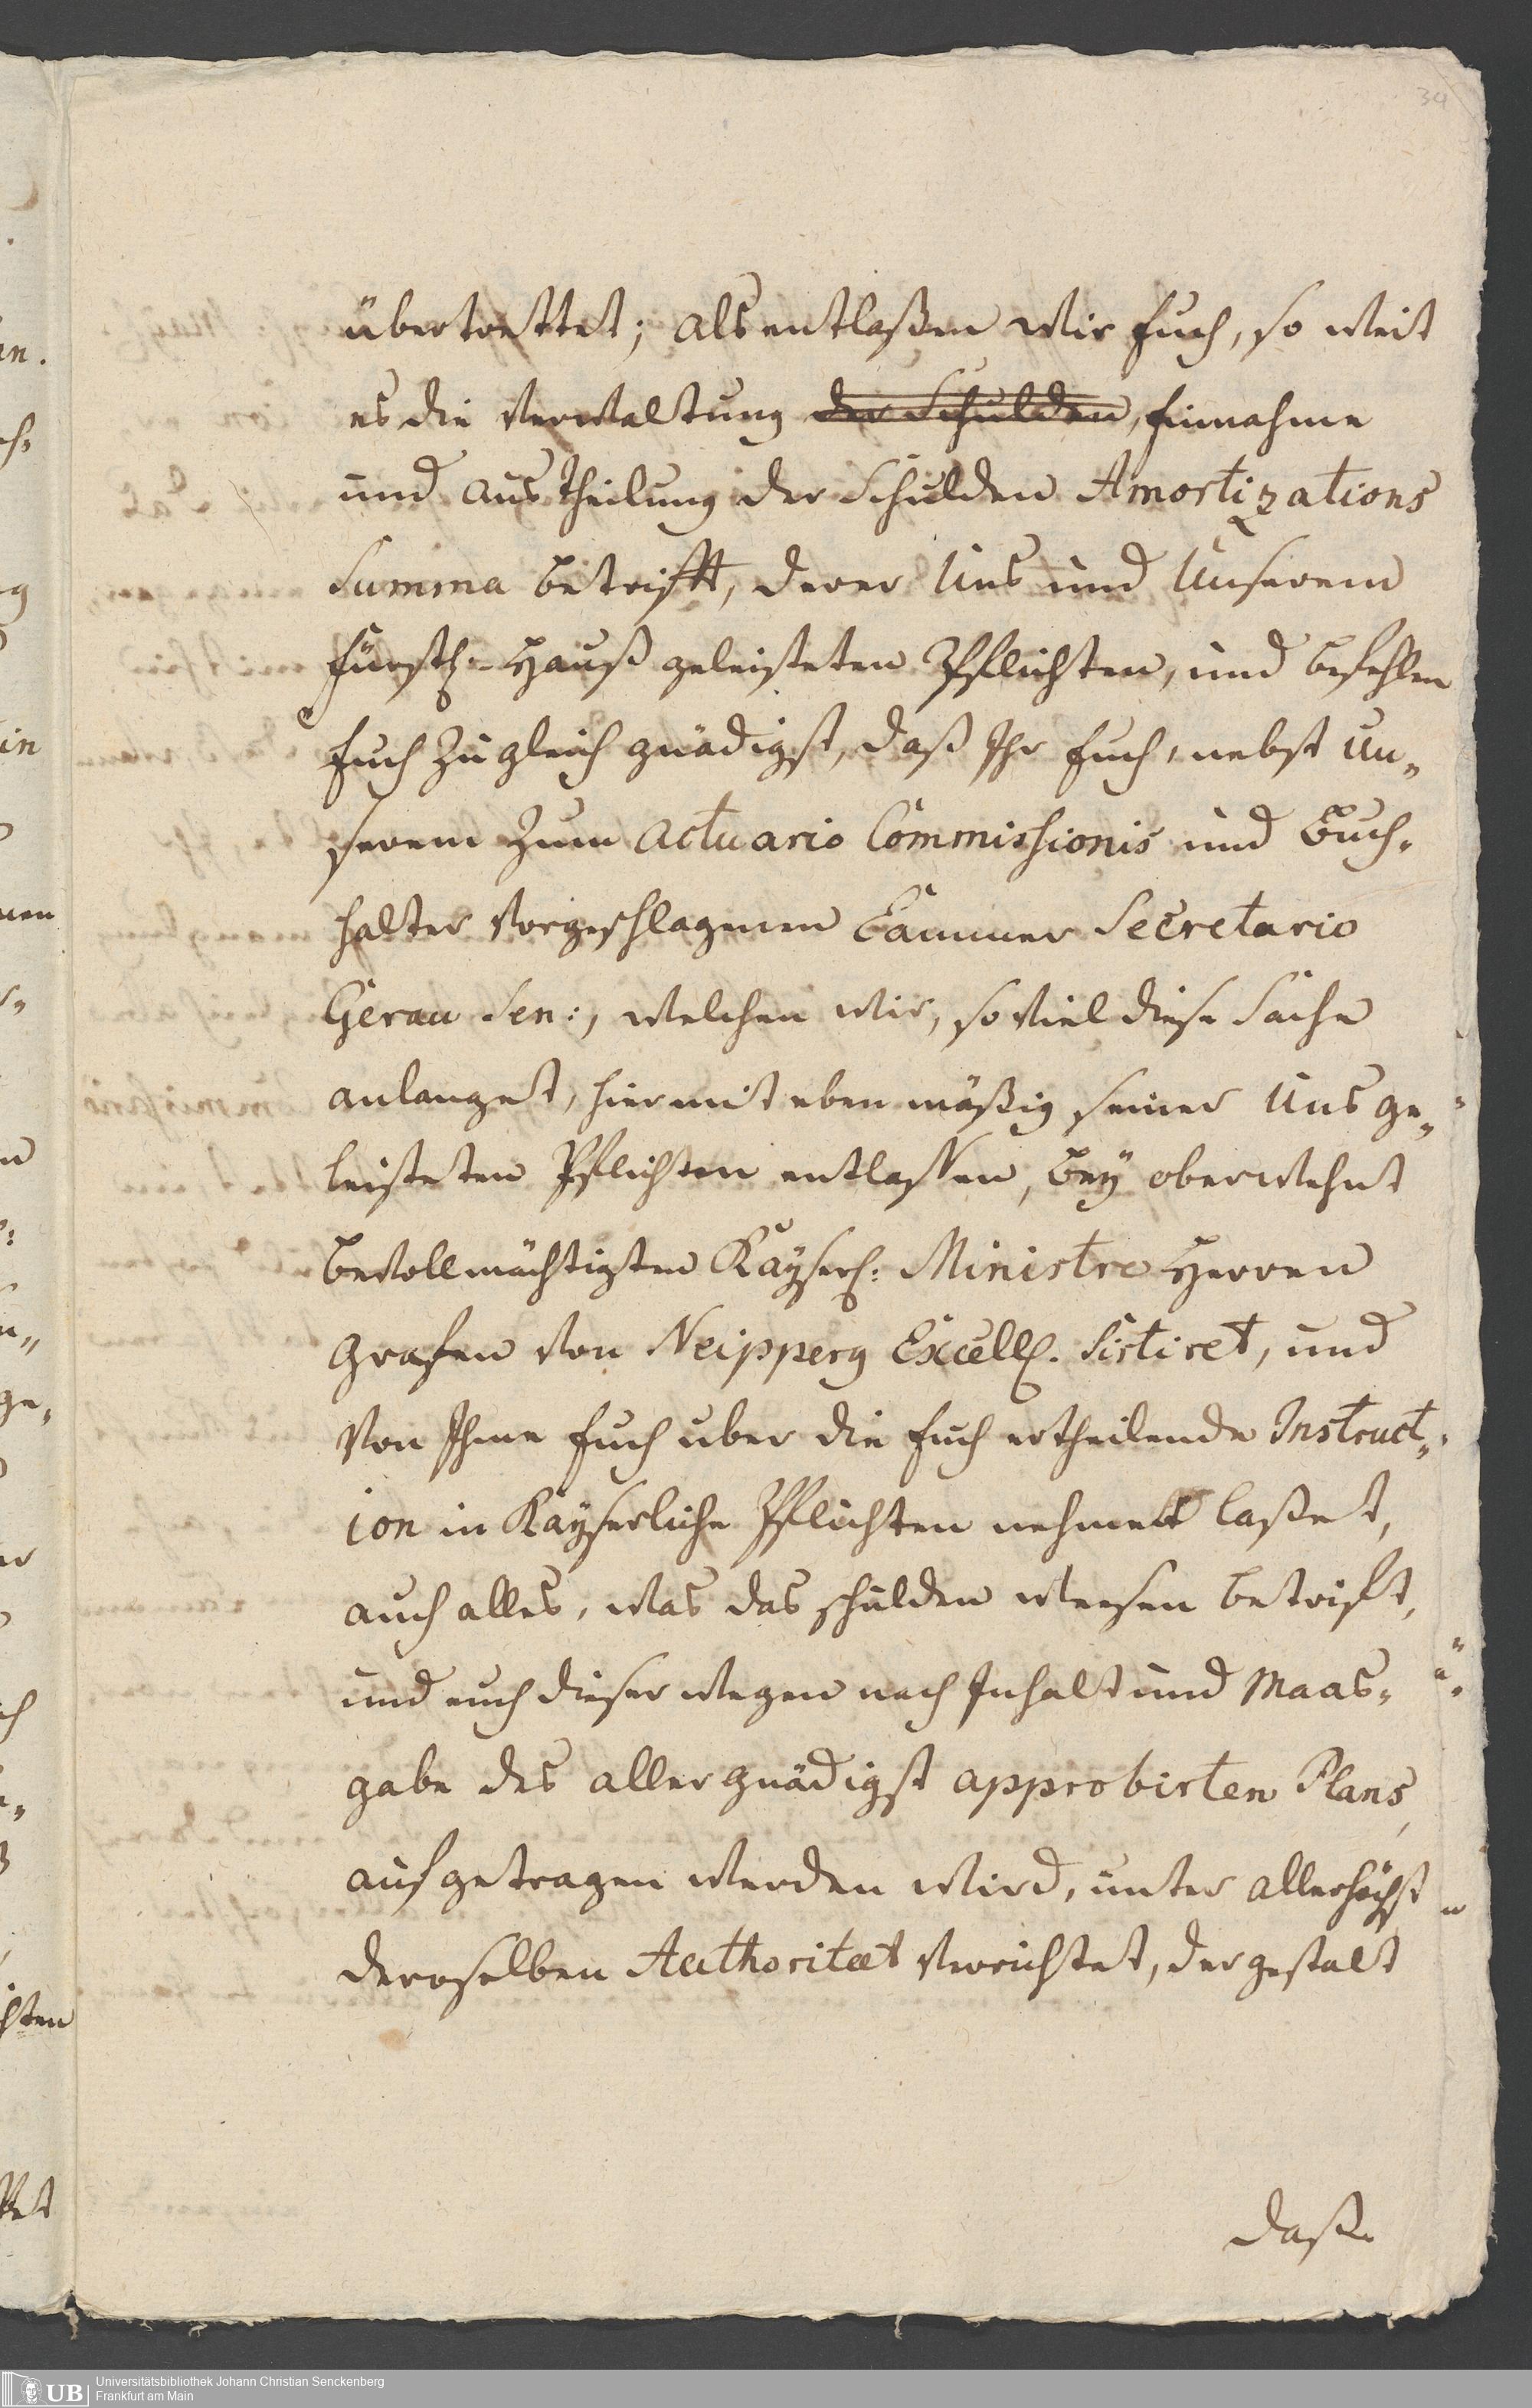 34
übertrettet; als entlaßen Wir Euch, so weit
es die Verwaltung der Schulden, Einnahme
und Austheilung der Schulden Amortizations
Summa betrifft, derer Uns und Unserem
Fürstl. Hauß geleisteten Pflichten, und befehlen
Euch zugleich gnädigst, daß Ihr Euch, nebst Un„
serem zum Actuario Commissionis und Buch„
halter vorgeschlagenen Cammer Secretario
Gerau Sen:, welchen Wir, so viel diese Sache
anlanget, hiermit ebenmäßig seiner Uns ge„
leisteten Pflichten entlassen, bey oberwehnt
bevollmächtigten Kayserl: Ministre Herren
Grafen von Neipperg Excell. sistiret, und
von Ihme Euch über die Euch ertheilende Instruct„
ion in Kayserliche Pflichten nehmen laßet,
auch alles, was das Schulden Weesen betrift,
und euch dieserwegen nach Inhalt und Maas„
gabe des allergnädigst approbirten Plans,
aufgetragen werden wird, unter allerhöchst
deroselben Authoritæt verrichtet, dergestalt
daß
UB
Universitätsbibliothek Johann Christian Senckenberg
Frankfurt am Main